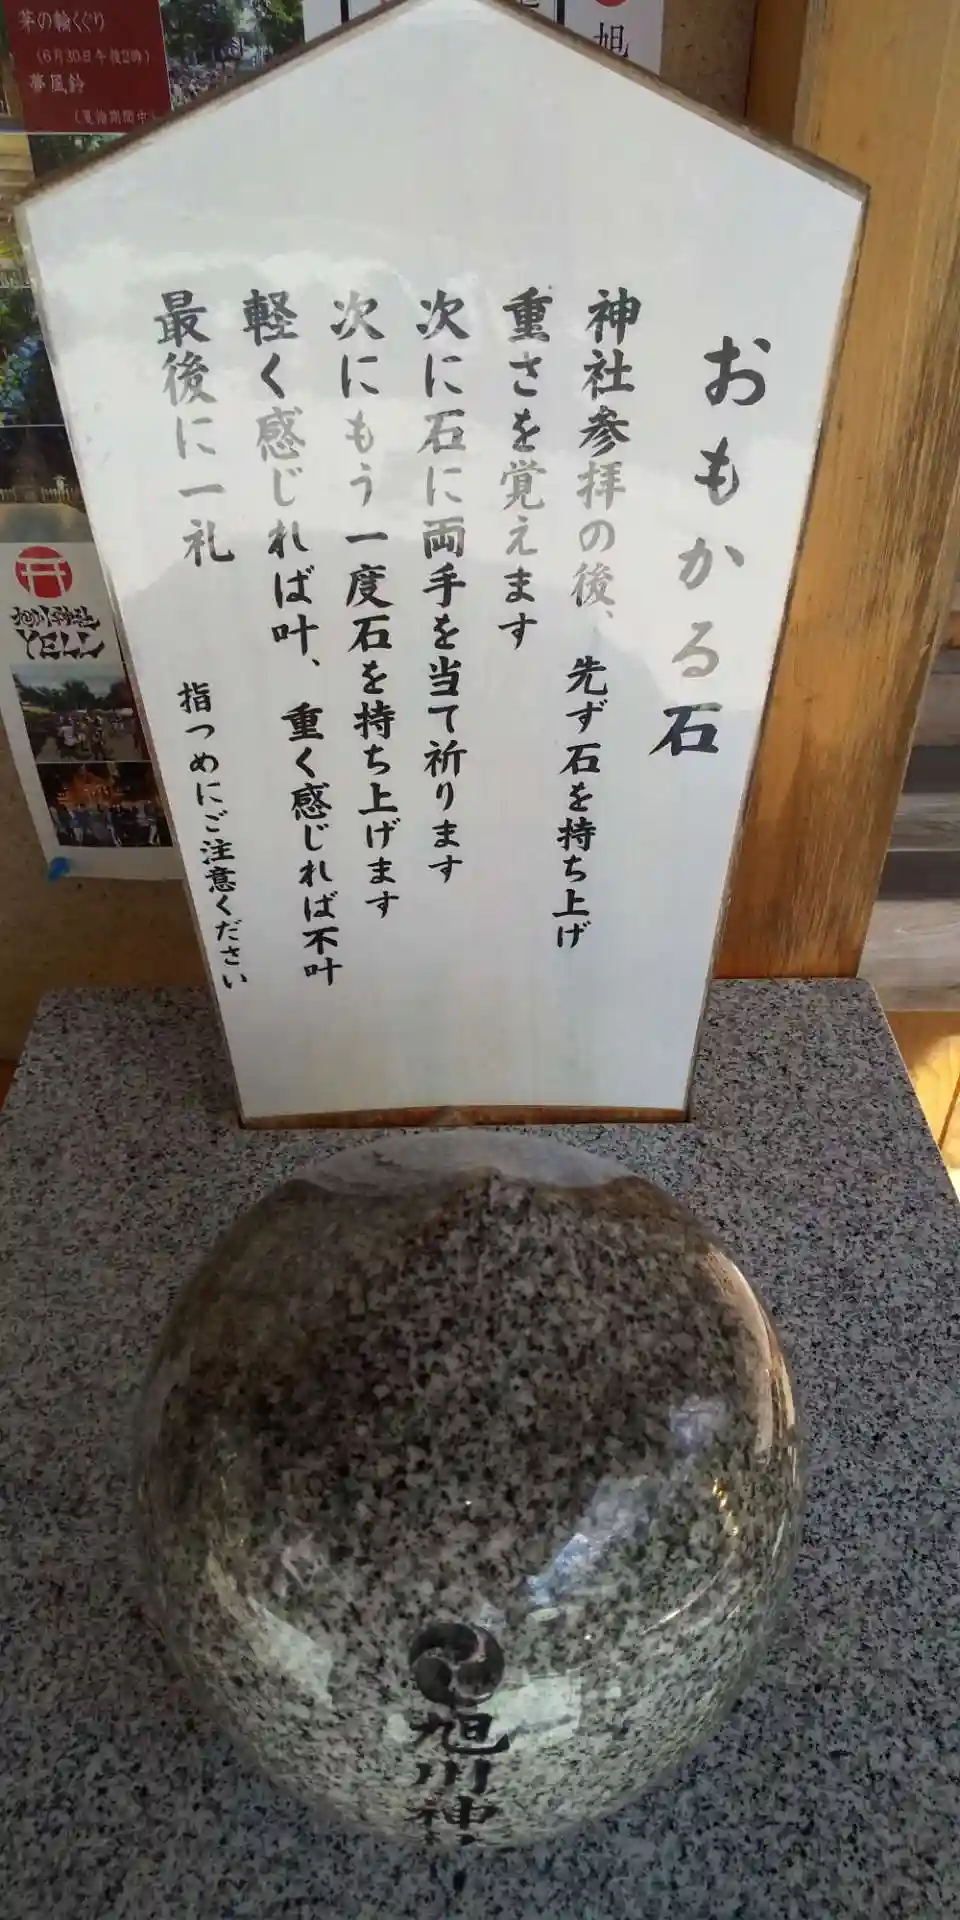 おもかる石
神社参拝の後、先ず石を持ち上げ
重さを覚えます
次に石に両手を当て祈ります
次にもう一度石を持ち上げます
軽く感じれば叶、重く感じれば不叶
最後に一礼
指つめにご注意ください
茅の輪くぐり
(6月30日午後2時)
夢風鈴
(夏詣期間中)
旭
旭川神社
YELL
旭川神